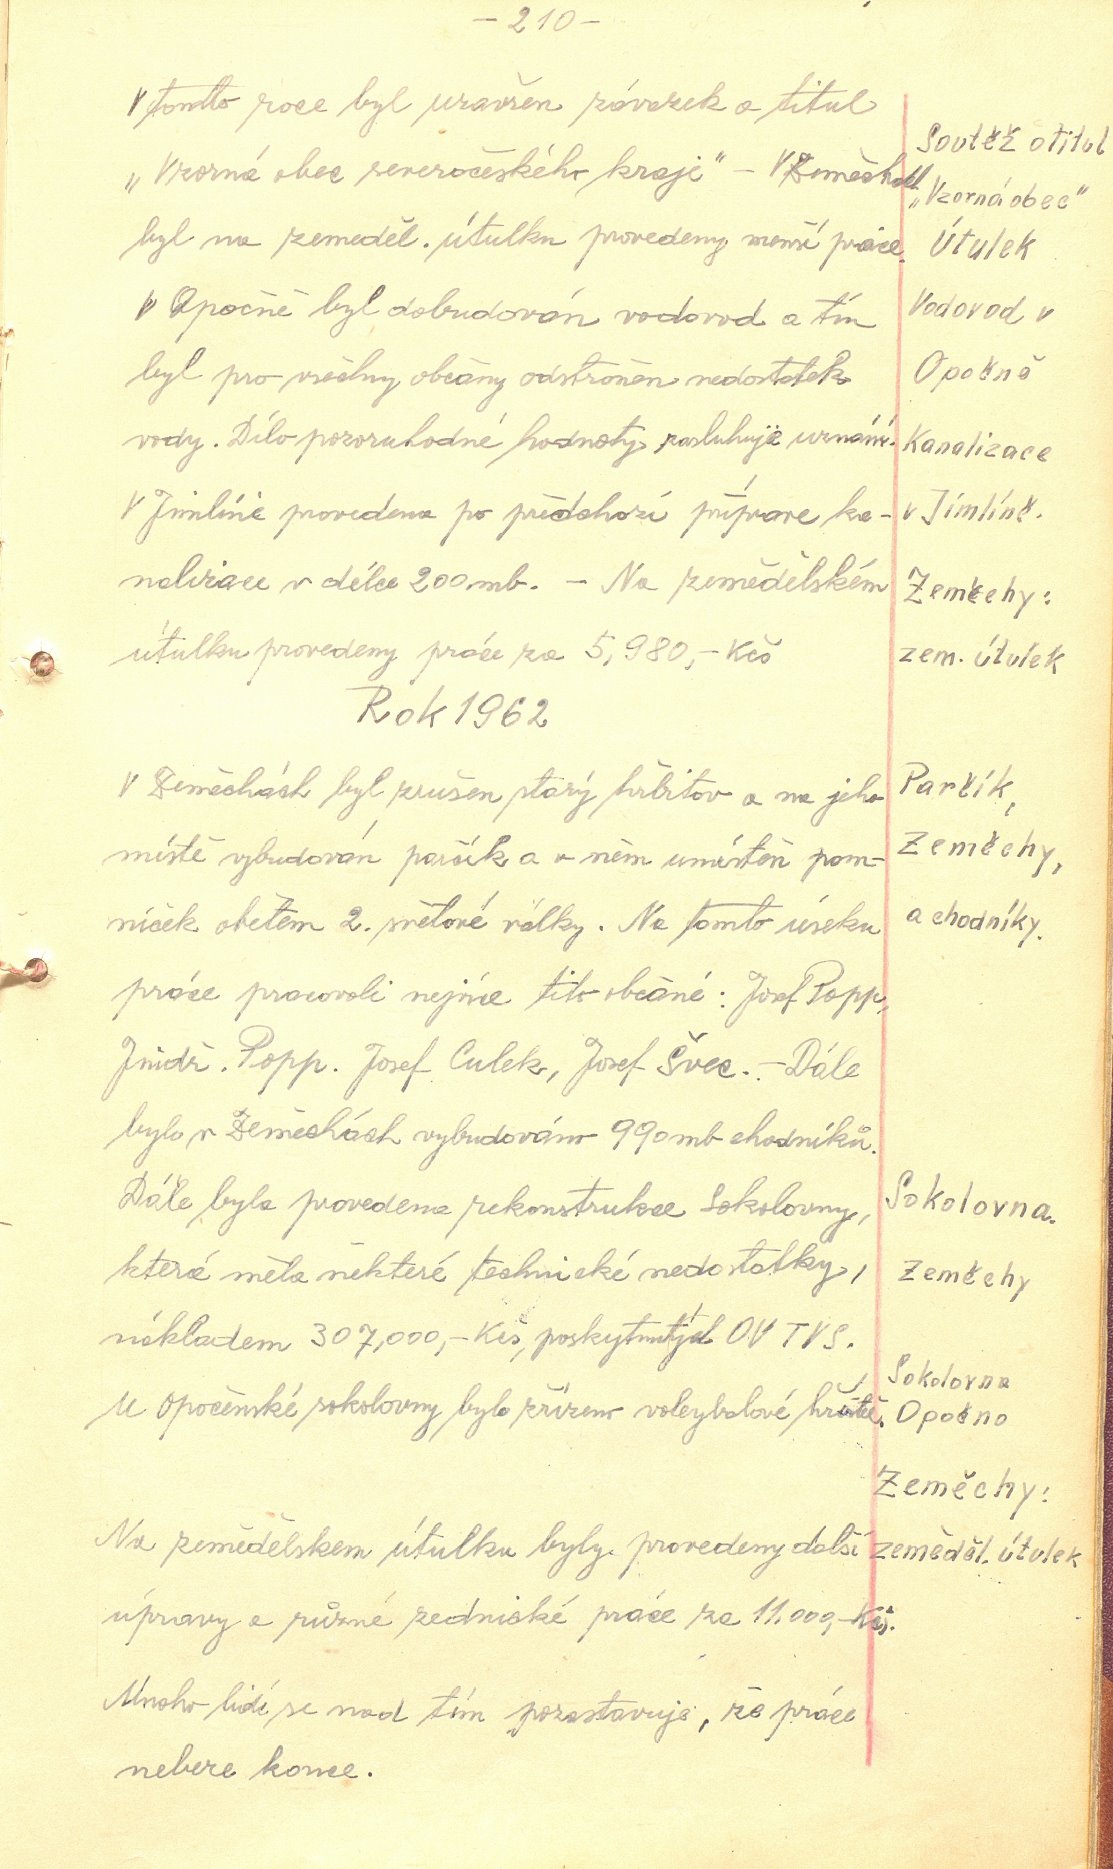 - 210 -
V tomto roce byl uzavřen závazek o titul
Soutěž o titul
„Vzorná obec severočeského kraje" - V Zeměchách
„Vzorná obec"
byl na zemeděl. útulku provedeny menší práce.
Útulek
V Opočně byl dobudován vodovod a tím
Vodovod v
byl pro všechny občany odstraněn nedostatek
Opočně
vody. Dílo pozoruhodné hodnoty zasluhuje uznání.
Kanalizace
V Jimlíně provedena po předchozí přípravě ka-
v Jimlíně.
nalizace v délce 200 mb. - Na zemědělském
Zeměchy:
útulku provedeny práce za 5,980,- Kčs
zem. útulek
Rok 1962
V Zeměchách byl zrušen starý hřbitov a na jeho
Parčík,
místě vybudován parčík a v něm umístěn pom-
Zeměchy,
níček obětem 2. světové války. Na tomto úseku
a chodníky.
práce pracovali nejvíce tito občané: Josef Popp,
Jindř. Popp. Josef Culek, Josef Švec. - Dále
bylo v Zeměchách vybudováno 990 mb chodníků.
Dále byla provedena rekonstrukce Sokolovny,
Sokolovna.
která měla některé technické nedostatky,
Zeměchy
nákladem 307,000,- Kčs, poskytnutých OV TVS.
Sokolovna
U Opočenské sokolovny bylo zřízeno voleybalové hřiště.
Opočno
Zeměchy:
Na zemědělskem útulku byly provedeny další
zeměděl. útulek
úpravy a různé zednické práce za 11.000,- Kčs.
Mnoho lidí se nad tím pozastavuje, že práce
nebere konce.